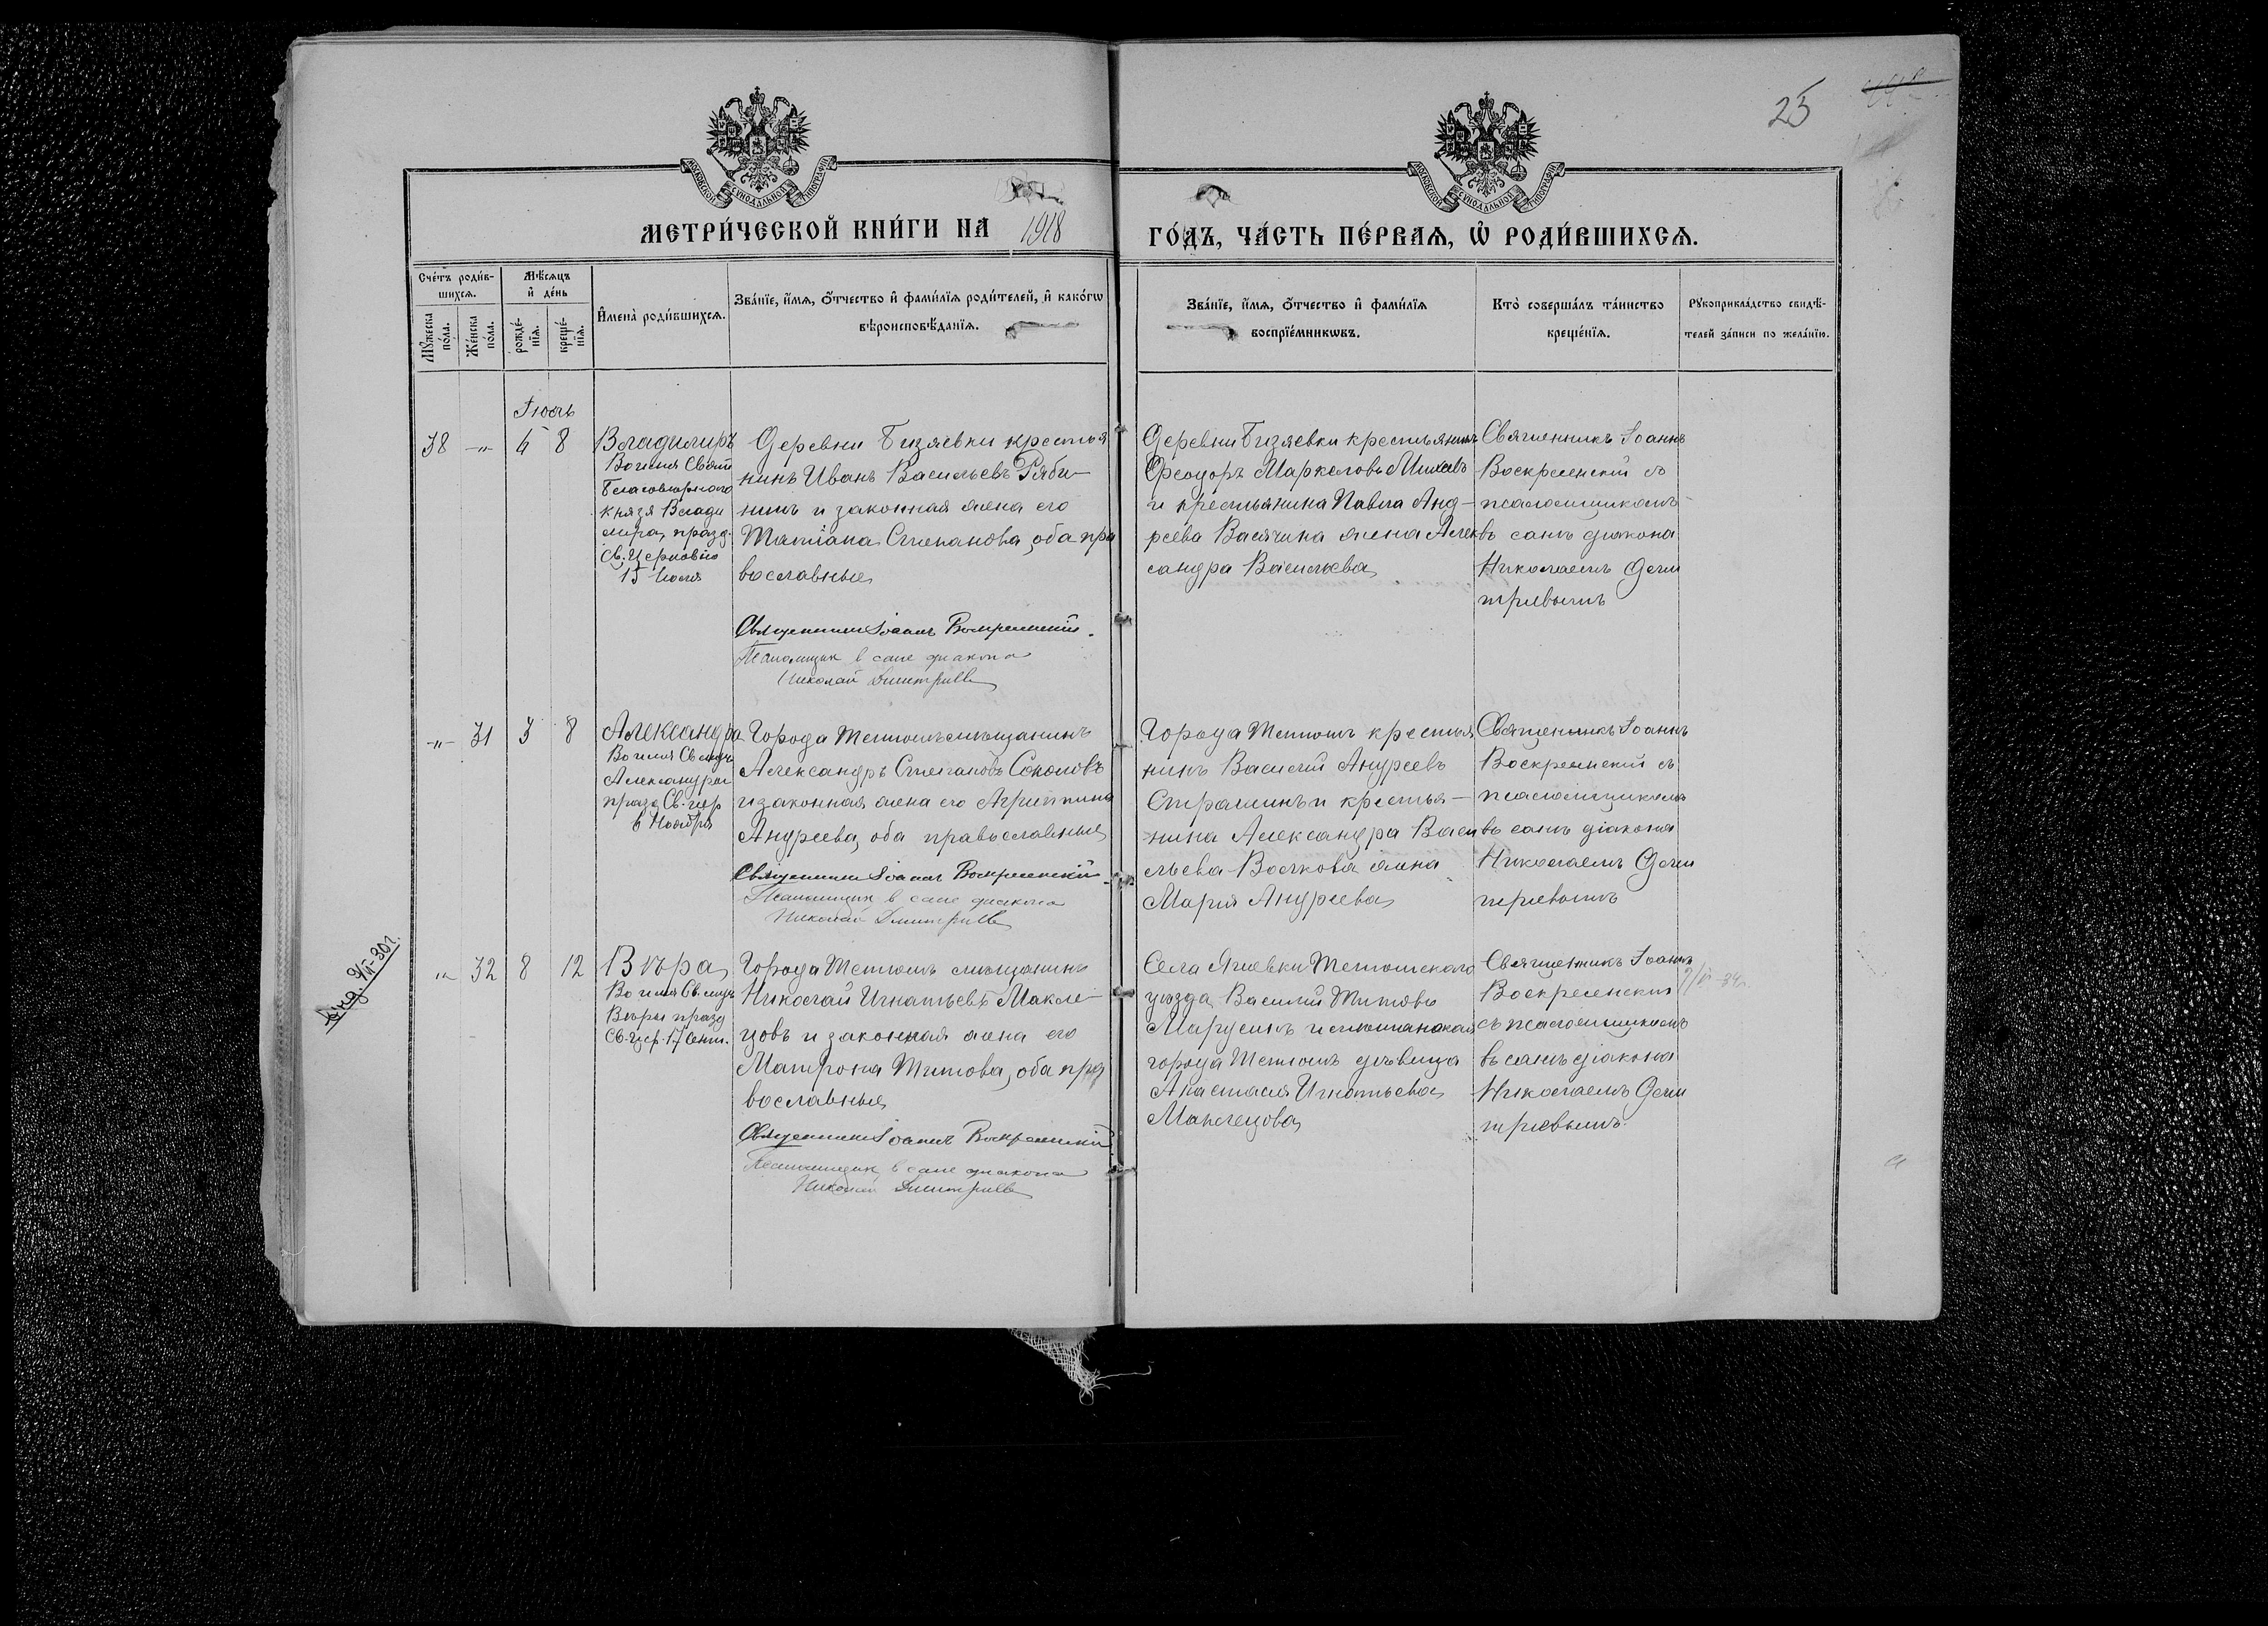 25
МОСКОВСКОЙ СѴНОДАЛЬНОЙ ТИПОГРАФІИ
МОСКОВСКОЙ СѴНОДАЛЬНОЙ ТИПОГРАФІИ
МЕТРИ́ЧЕСКОЙ КНИ́ГИ НА 1918
ГО́ДЪ, ЧА́СТЬ ПЕ́РВАѦ, Ѡ҆ РОДИ́ВШИХСѦ.
Сче́тъ роди́в-
шихсѧ.
Мꙋ́жеска по́ла.
Же́нска по́ла.
Мѣ́сѧцъ
и҆ де́нь
рожде́-
нїѧ.
креще́-
нїѧ.
И҆мена̀ роди́вшихсѧ.
Зва́нїе, и҆́мѧ, ѻ҆́тчество и҆ фами́лїѧ роди́телей, и҆ како́гѡ
вѣроисповѣ́данїѧ.
Зва́нїе, и҆́мѧ, ѻ҆́тчество и҆ фами́лїѧ
воспрїе́мникѡвъ.
Кто̀ соверша́лъ та́инство
креще́нїѧ.
Рꙋкоприкла́дство свидѣ́-
телей за́писи по жела́нїю.
Іюль
38 -"- 6 8
Владимиръ
Во имя Свят
Благовѣрнаго
князя Влади
мира, празд.
Св. Церковію
15 Іюля
Деревни Бизяевки крестья
нинъ Иванъ Васильевъ Ряби-
нинъ и законная жена его
Татіана Степанова, оба пра
вославные
Священникъ Іоаннъ Воскресенскій.
Псаломщик в сане диакона
Николай Димитриев
Деревни Бизяевки крестьянинъ
Ѳеодоръ Маркеловъ
и крестьянина Павла Анд-
реева жена Алек
сандра Васильева
Священникъ Іоаннъ
Воскресенскій съ
псаломщикомъ
въ санѣ діакона
Николаемъ Дими
тріевымъ
-"- 31 3 8
Александра
Во имя Св. муч.
Александры
празд. Св. цер
6 Ноября
Города Тетюшъ мѣщанинъ
Александръ Степановъ Соколовъ
и законная жена его Агриппина
Андреева, оба православные
Священникъ Іоаннъ Воскресенскій
Псаломщик в сане диакона
Николай Димитриев
Города Тетюшъ крестья
нинъ Василій Андреевъ
Страшинъ и крестья-
нина Александра Васи
льева Волкова жена
Мария Андреева
Священникъ Іоаннъ
Воскресенскій съ
псаломщикомъ
въ санѣ діакона
Николаемъ Дими
тріевымъ
9/II-30 г.
-"- 32 8 12
Вѣра
Во имя Св. муч.
Вѣры празд
Св. цер. 17 Сент.
Города Тетюшъ мѣщанинъ
Николай Игнатьевъ Макле-
цовъ и законная жена его
Матрона Титова, оба пра
вославные
Священникъ Іоаннъ Воскресенскій
Псаломщик в сане диакона
Николай Димитриев
Села Тетюшскаго
уѣзда Василій Титовъ
Марусинъ и мѣщанская
города Тетюшъ дѣвица
Анастасія Игнатьева
Маклецова
Священникъ Іоаннъ
Воскресенскій
съ псаломщикомъ
въ санѣ діакона
Николаемъ Дими
тріевымъ